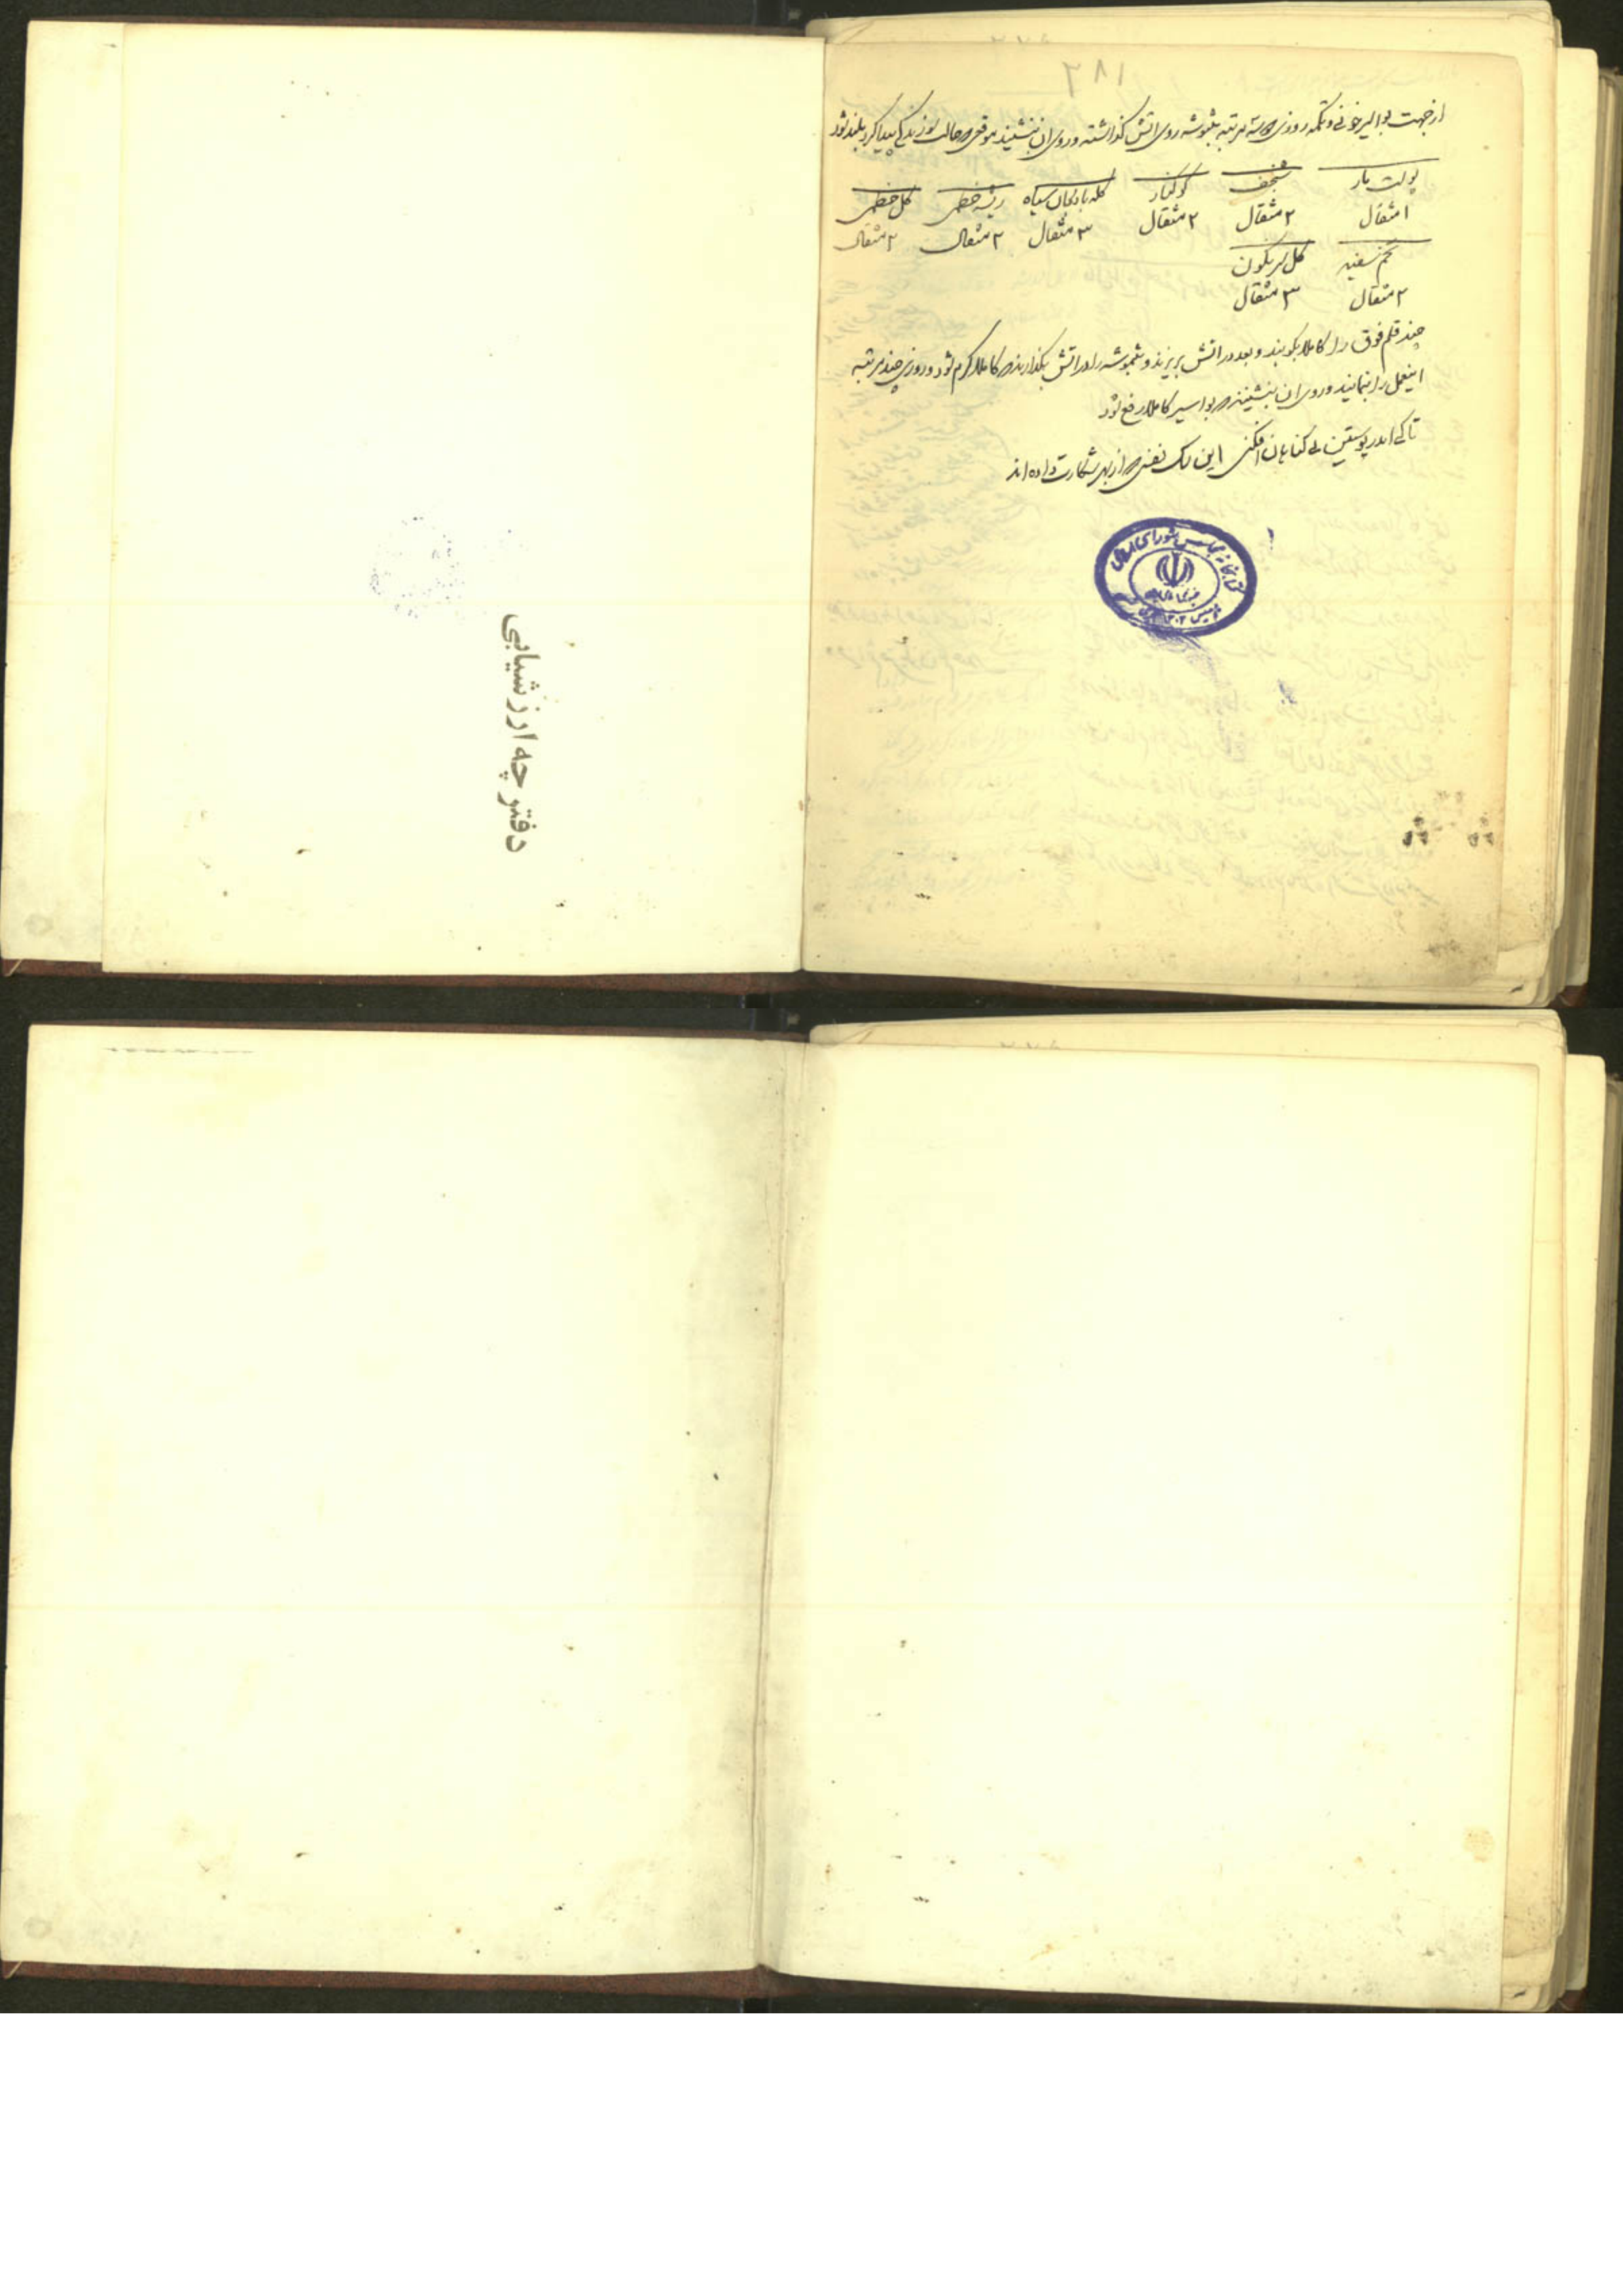 ۱۸۲
از جهت بواسیر خونی و تکمه روزی دو سه مرتبه روی اتش گذاشته و روی ان بنشیند موقعی حالت سوزندگی پیدا کرد بلند شود
پوست مار شنجرف کوکنار کله بادنجان سیاه ریشه خطمی گل خطمی
۱ مثقال ۲ مثقال ۲ مثقال ۳ مثقال ۲ مثقال ۲ مثقال
تخم سفید گل
۲ مثقال ۳ مثقال
چند قلم فوق را کاملا بکوبند و بعد در اتش بریزند و را در اتش بگذارند کاملا گرم شود و روزی چند مرتبه
اینعمل را بنمایند و روی ان بنشینند بواسیر کاملا رفع شود
تا کی اندر پوستین بی گناهان افکنی این سک نفسی از بهر شکارت داده اند
کتابخانه مجلس شورای اسلامی
دفترچه ارزشیابی